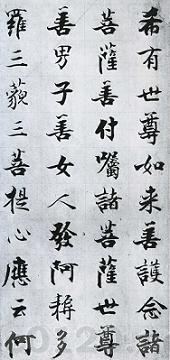 希有世尊如来善護念諸
菩薩善付囑諸菩薩世尊
善男子善女人發阿耨多
羅三藐三菩提心應云何